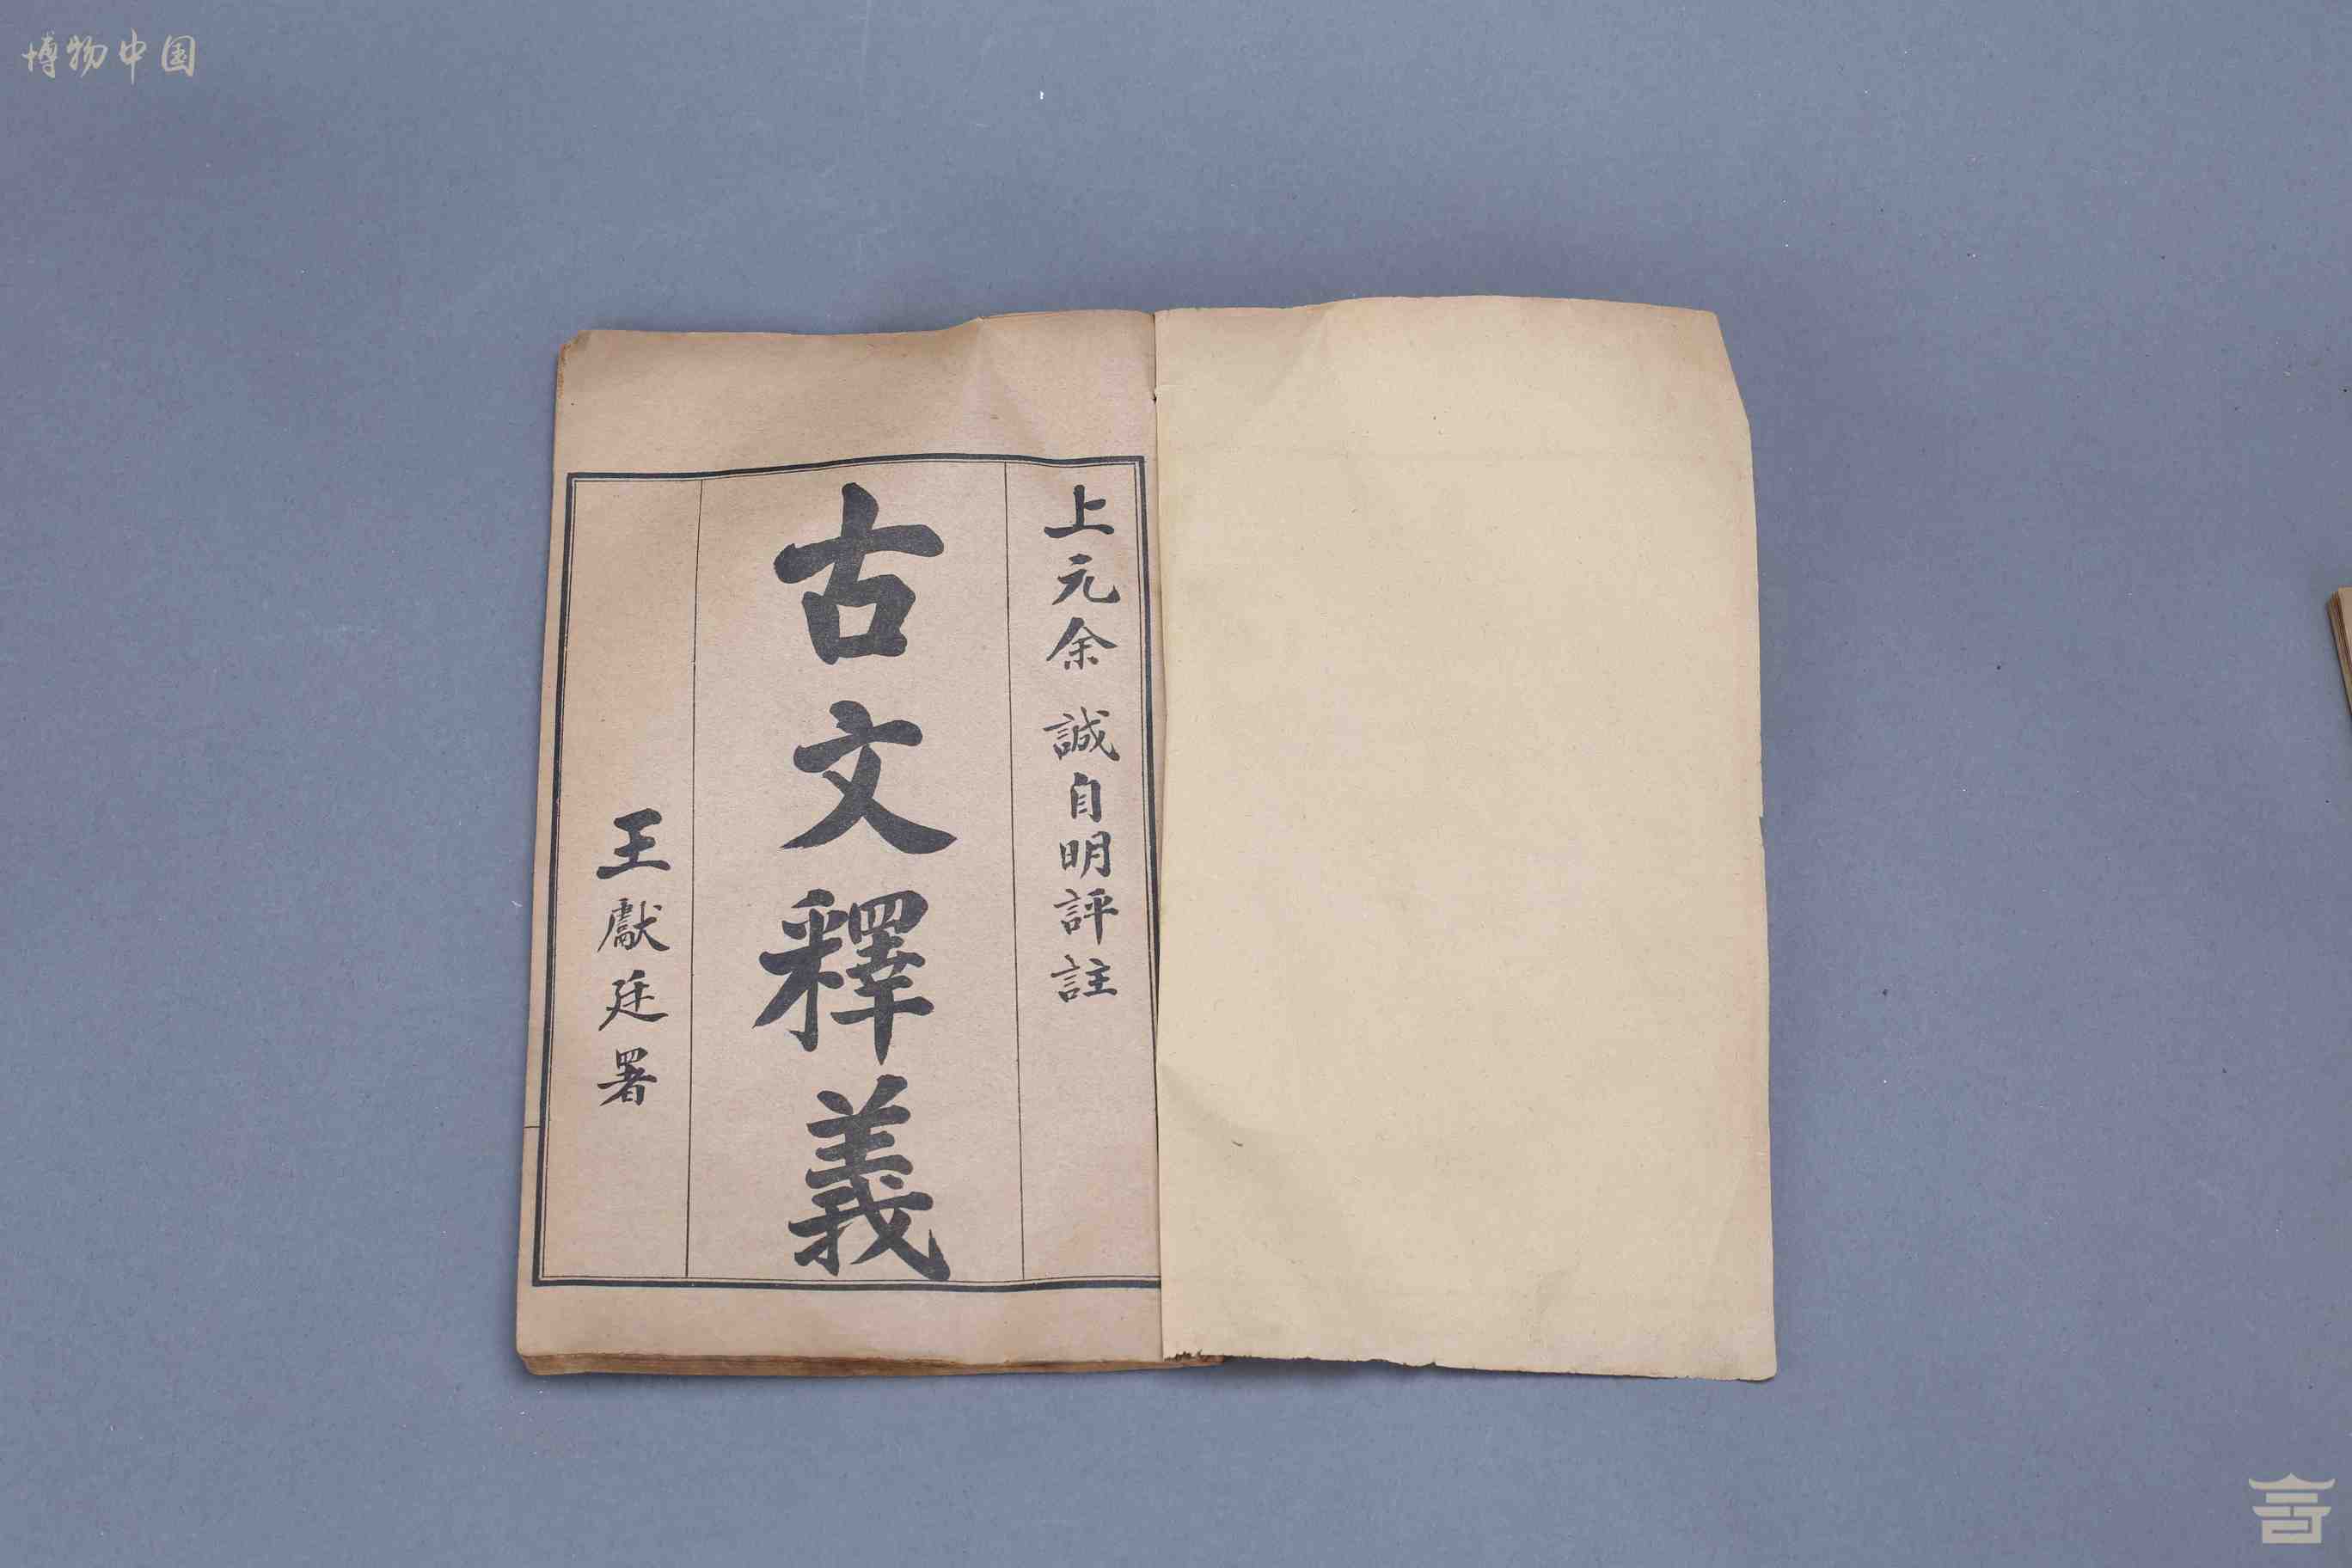 博物中国
上元余 誠自明評註
古文釋義
王獻廷署